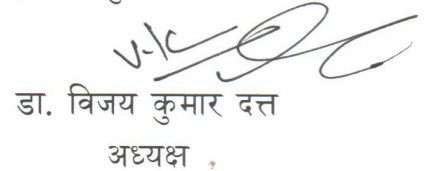 डा. विजय कुमार दत्त
अध्यक्ष